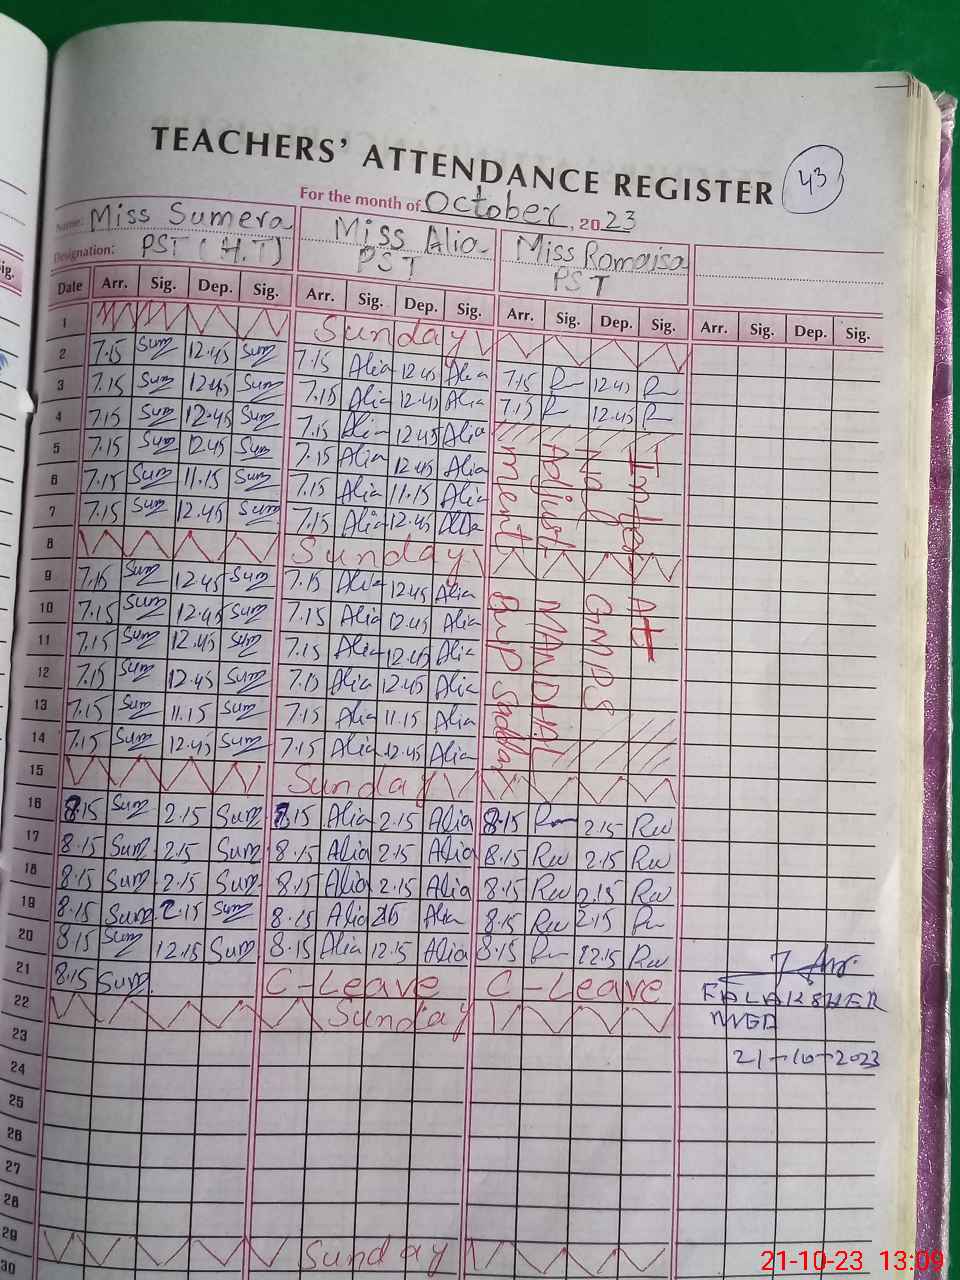 TEACHERS' ATTENDANCE REGISTER
43
For the month of October, 2023
Name: Miss Sumera Miss Alia Miss Romaisa
Designation: PST (H.T) PST PST
Date Arr. Sig. Dep. Sig. Arr. Sig. Dep. Sig. Arr. Sig. Dep. Sig. Arr. Sig. Dep. Sig.
1 Sunday
2 7.15 Sum 12.45 Sum 7.15 Alia 12.45 Alia 7.15 12.45
3 7.15 Sum 12.45 Sum 7.15 Alia 12.45 Alia 7.15 12.45
4 7.15 Sum 12.45 Sum 7.15 Alia 12.45 Alia
5 7.15 Sum 12.45 Sum 7.15 Alia 12.45 Alia
6 7.15 Sum 11.15 Sum 7.15 Alia 11.15 Alia
7 7.15 Sum 12.45 Sum 7.15 Alia 12.45 Alia
8 Sunday
9 7.15 Sum 12.45 Sum 7.15 Alia 12.45 Alia
10 7.15 Sum 12.45 Sum 7.15 Alia 12.45 Alia
11 7.15 Sum 12.45 Sum 7.15 Alia 12.45 Alia
12 7.15 Sum 12.45 Sum 7.15 Alia 12.45 Alia
13 7.15 Sum 11.15 Sum 7.15 Alia 11.15 Alia
14 7.15 Sum 12.45 Sum 7.15 Alia 12.45 Alia
At
GMPS
Adjust MANDHAL
ment
15 Sunday
16 8.15 Sum 2.15 Sum 8.15 Alia 2.15 Alia 8.15 2.15 Rw
17 8.15 Sum 2.15 Sum 8.15 Alia 2.15 Alia 8.15 Rw 2.15 Rw
18 8.15 Sum 2.15 Sum 8.15 Alia 2.15 Alia 8.15 Rw 2.15 Rw
19 8.15 Sum 2.15 Sum 8.15 Alia 2.15 Alia 8.15 Rw 2.15
20 8.15 Sum 12.15 Sum 8.15 Alia 12.15 Alia 8.15 12.15 Rw
21 8.15 Sum C-Leave C-Leave
FALAKSHER
22 Sunday
23
21-10-2023
24
25
26
27
28
29 Sunday
30
21-10-23 13:09